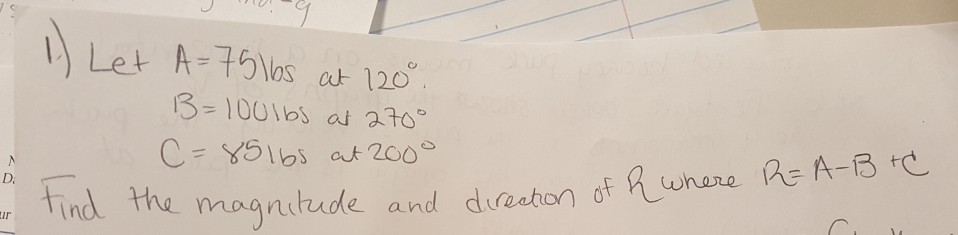 1.) Let A = 75 lbs at 120°.
B = 100 lbs at 270°
C = 85 lbs at 200°
Find the magnitude and direction of R where R = A - B + C